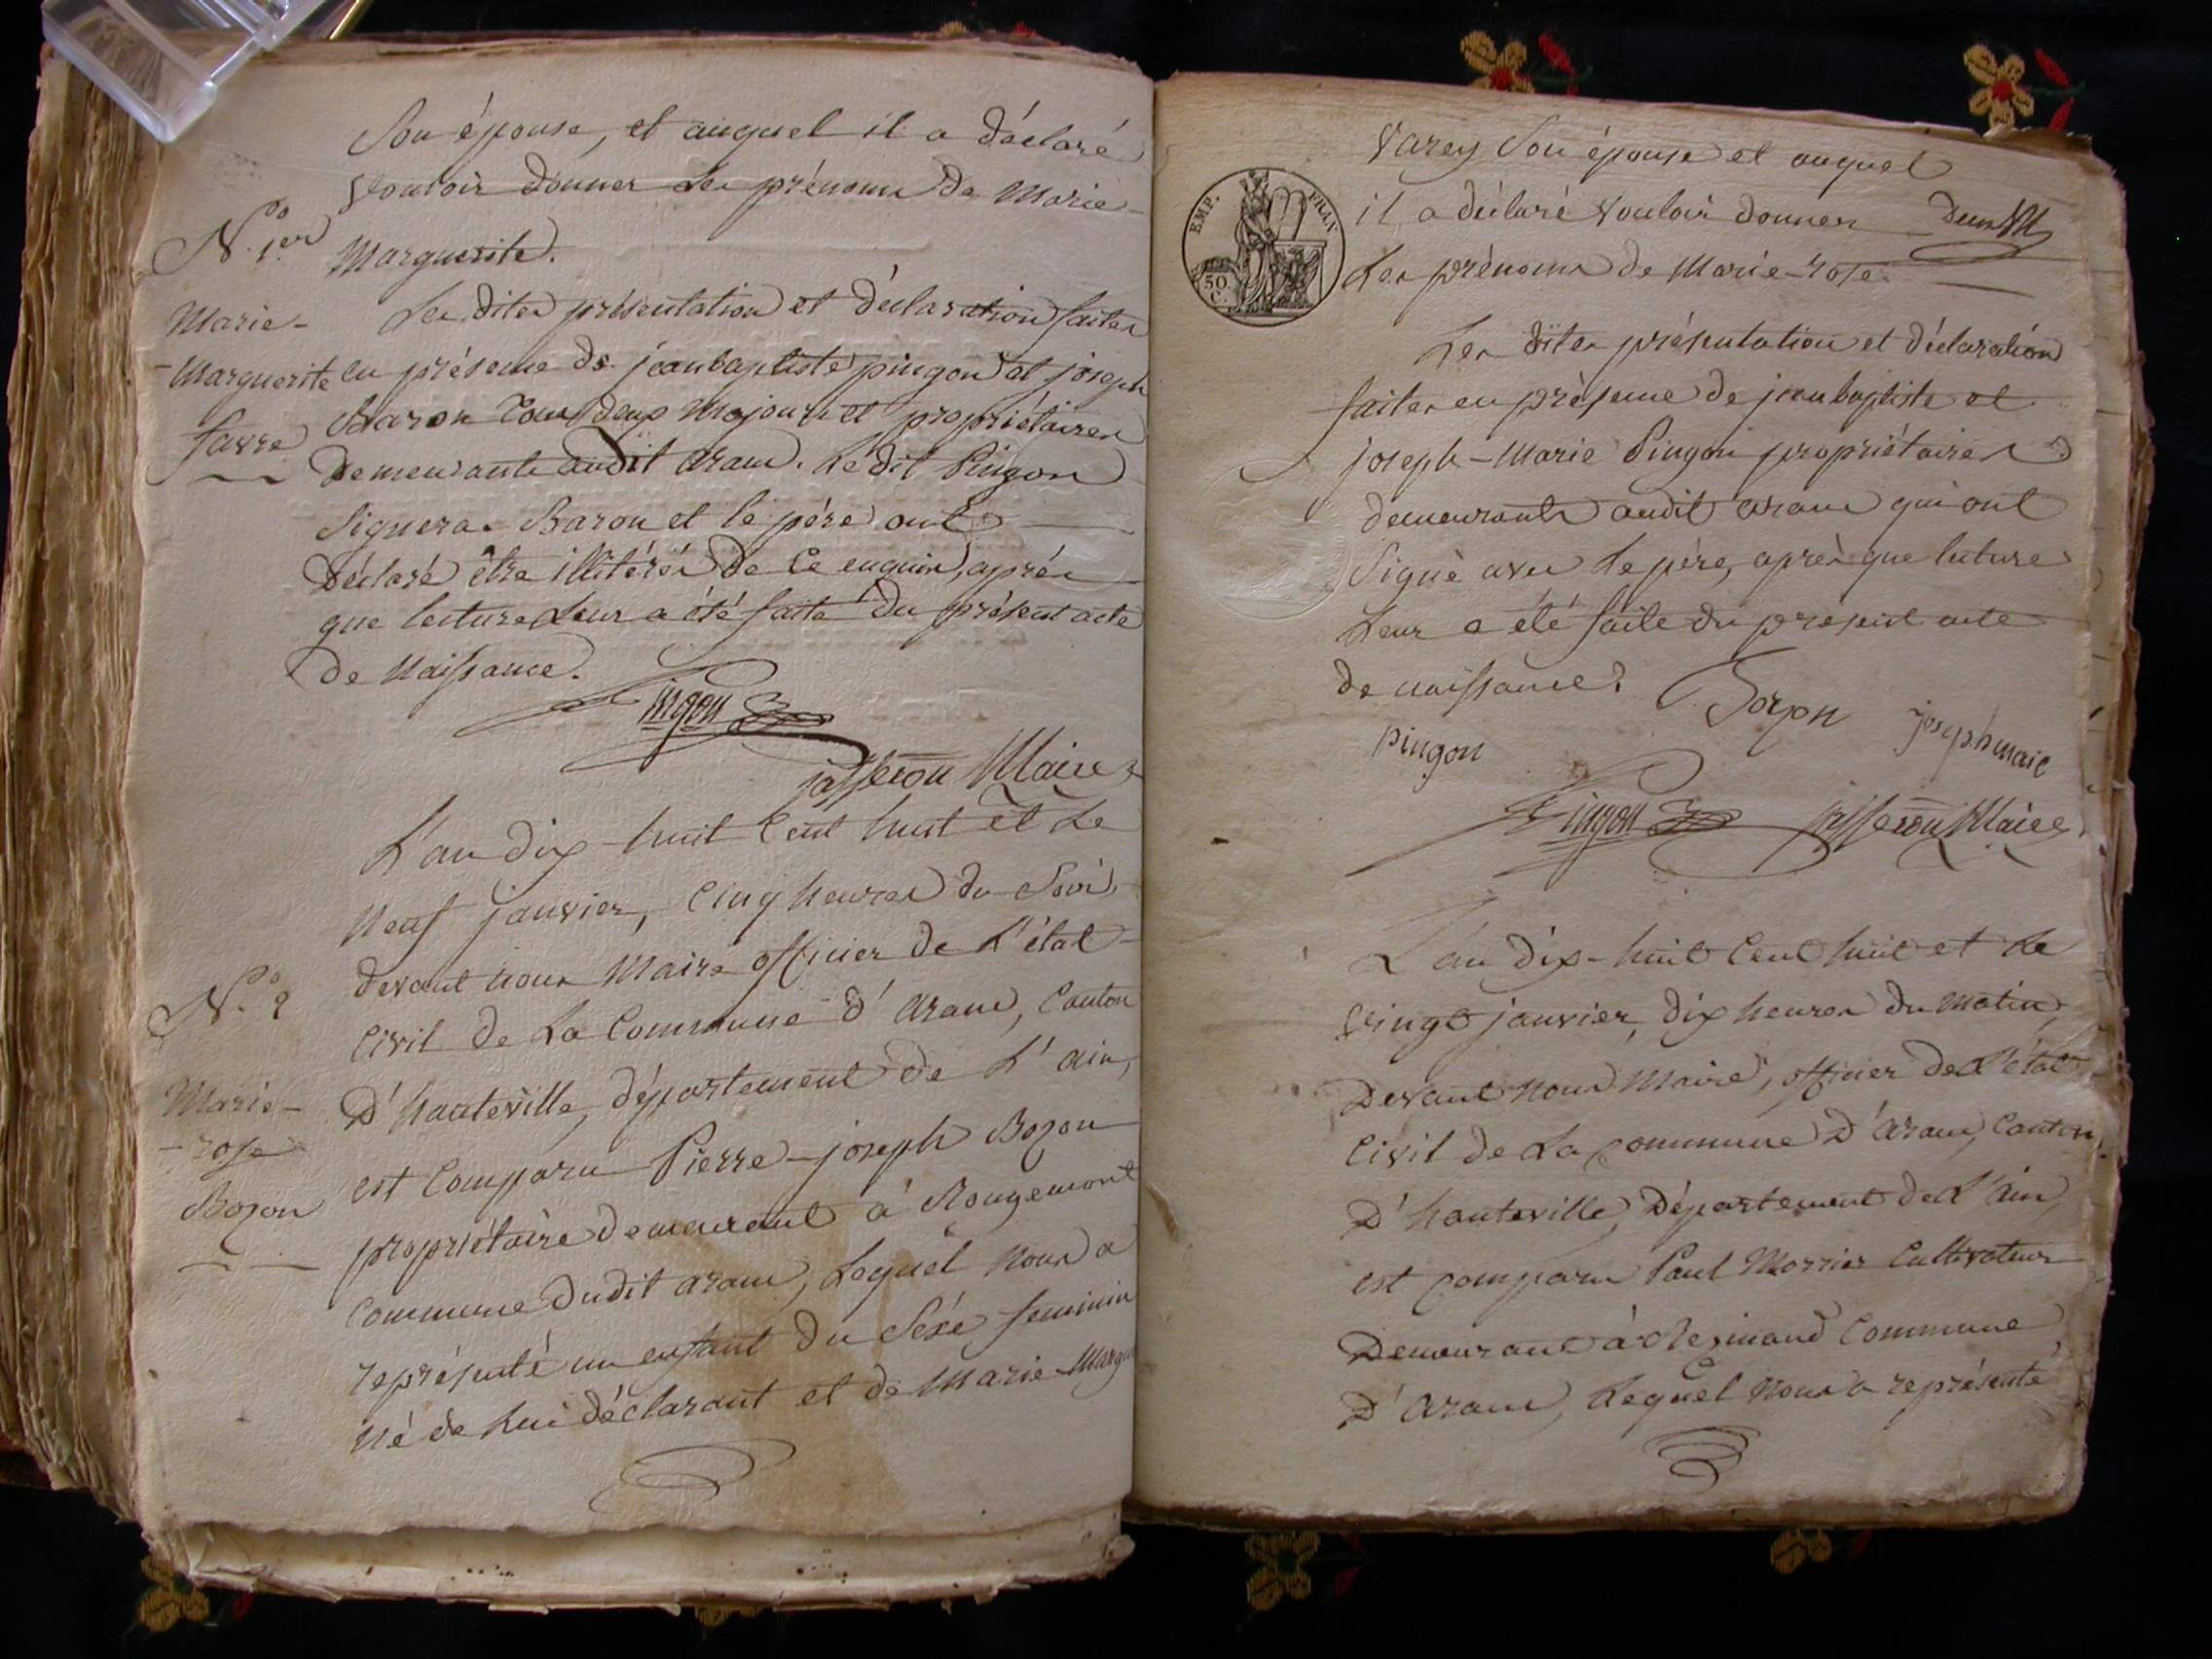 Son épouse, et auquel il a déclaré
vouloir donner les prénoms de Marie-
Marguerite.
N.o 1.er
Marie-
-Marguerite
favre
Les dites présentation et déclaration faites
en présence de jean baptiste pingon et joseph
Baron tous deux majeurs et propriétaires
demeurants audit aranc. Le dit Pingon
signera. Baron et le père ont
déclaré être illitérés de ce enquis, après
que lecture leur a été faite du présent acte
de Naissance.
Pingon
jasseron Maire
N.o 2
Marie-
-rose
Bozon
L'an dix-huit cent huit et le
neuf janvier, cinq heures du soir
devant nous Maire officier de l'état
civil de la Commune d'aranc, Canton
d'hauteville, département de l'ain,
est comparu Pierre-joseph Bozon
propriétaire demeurant à Rougemont
commune dudit aranc, lequel nous a
représenté un enfant du sexe feminin
né de lui déclarant et de Marie-Margte
Varey son épouse et auquel
il a déclaré vouloir donner
les prénoms de Marie-rose
EMP. FRAN
50.
C.
Les dites présentation et déclaration
faites en présence de jean baptiste et
joseph-Marie Pingon propriétaires
demeurants audit aranc qui ont
signé avec le père, après que lecture
leur a été faite du présent acte
de naissance.
Bozon josephmarie
pingon
Pingon jasseron Maire
L'an dix-huit cent huit et le
vingt janvier, dix heures du matin,
devant nous Maire, officier de l'état
civil de la commune d'aranc, Canton
d'hauteville, département de l'ain,
est comparu Paul Morrier Cultivateur
demeurant à Resinand Commune
d'aranc, lequel nous a représenté